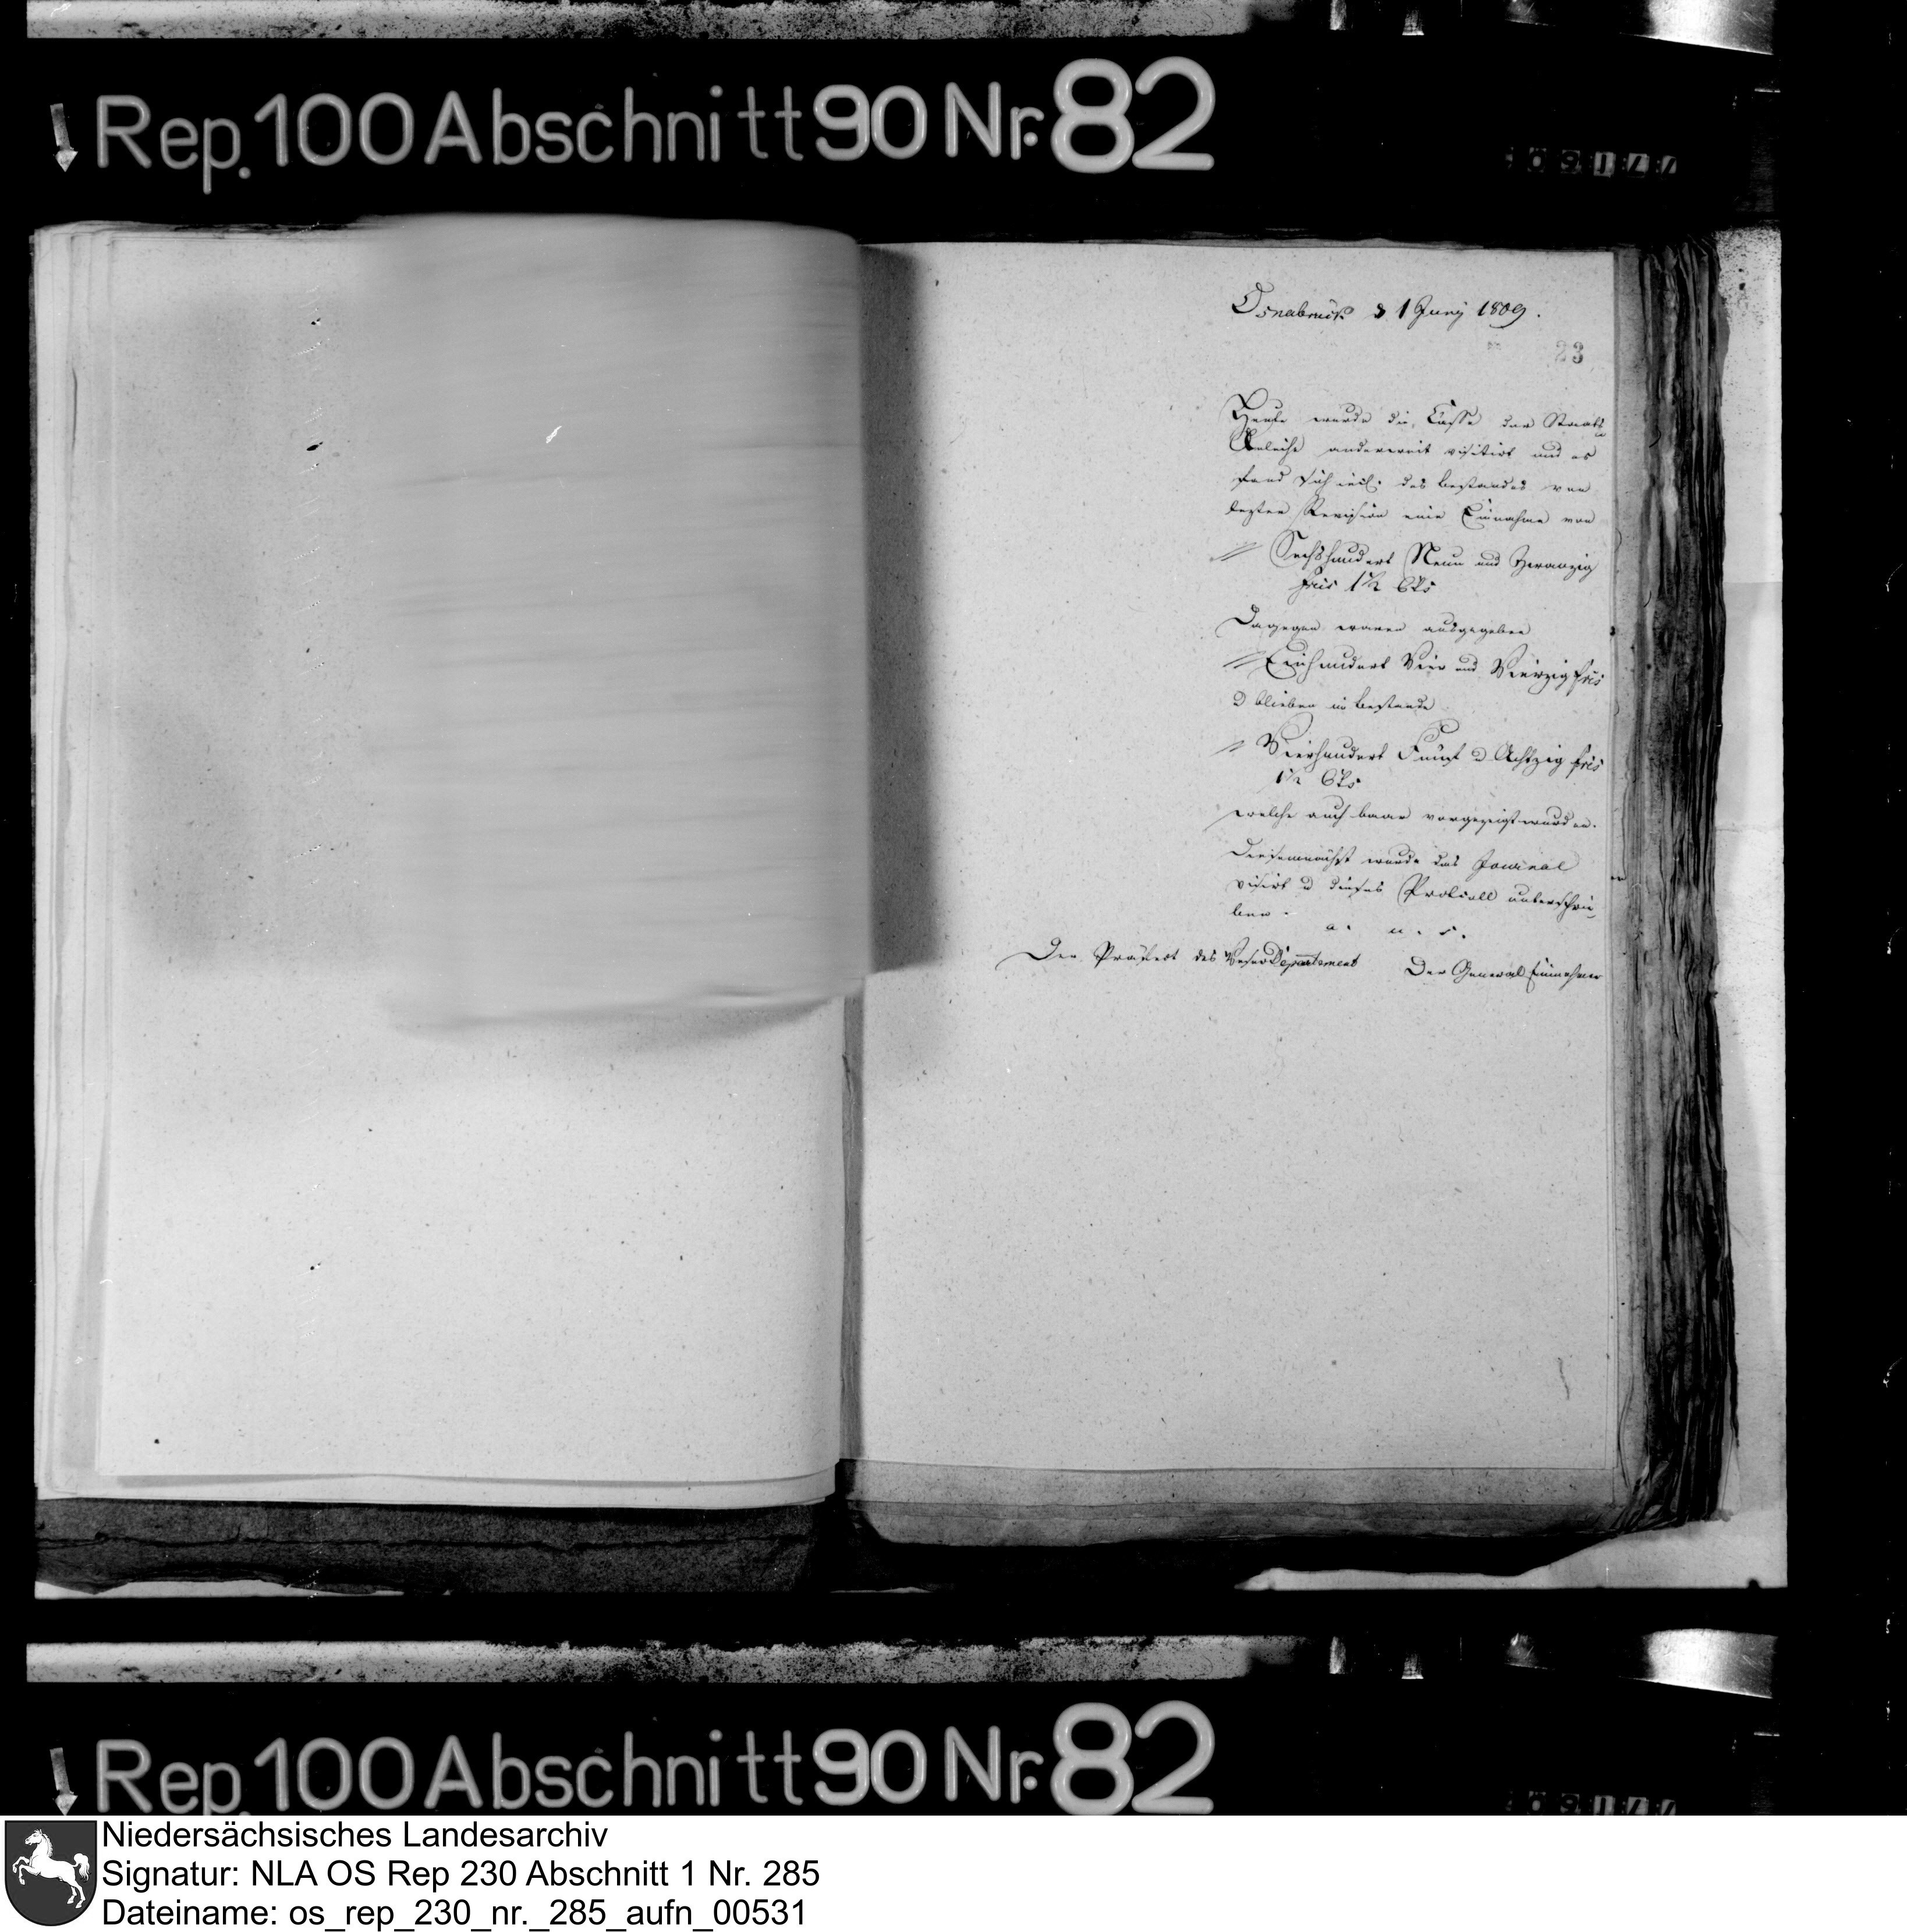 Rep. 100 Abschnitt 90 Nr. 82
Osnabrück d 1 Juny 1809.
23
Heute wurde die Casse der Staats
Anleihe anderweit visitirt und es
fand sich incl. des Bestandes von
letzter Revision eine Einnahme von
// Sechshundert Neun und Zwanzig
frcs 1½ Cts
Dagegen waren ausgegeben
// Einhundert Vier und Vierzig frcs
u blieben in Bestande
// Vierhundert Fünf u Achtzig frcs
1½ Cts
welche auch baar vorgezeigt wurden.
Hiernächst wurde das Journal
visirt u dieses Protocoll unterschrie
ben.
a. u. s.
Der Präfect des Weser Departement Der General Einnehmer
Rep. 100 Abschnitt 90 Nr. 82
Niedersächsisches Landesarchiv
Signatur: NLA OS Rep 230 Abschnitt 1 Nr. 285
Dateiname: os_rep_230_nr._285_aufn_00531